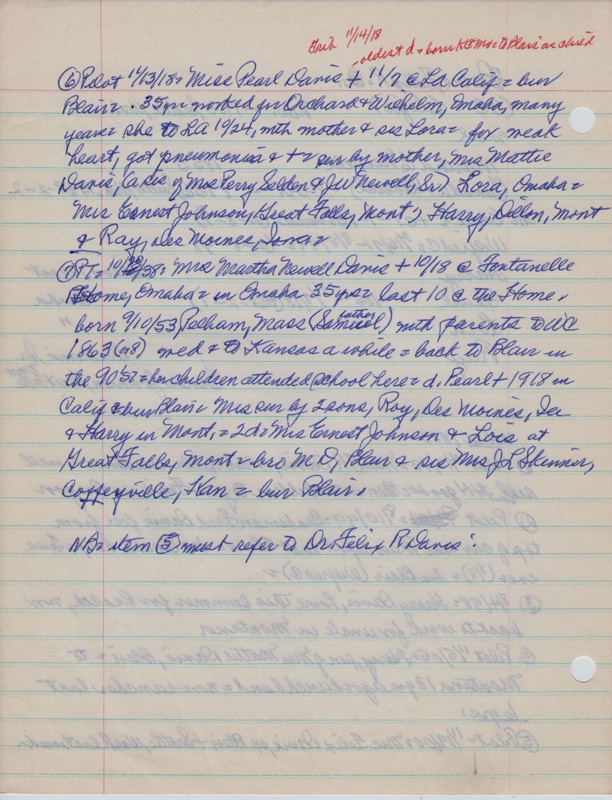 Trib 11/14/18
oldest d = born K to Mo = to Blair as child
⑥ Pilot 11/13/18 = Miss Pearl Davis + 11/7 @ LA Calif = bur
Blair = . 35 yr = worked for Orchard & Wilhelm, Omaha, many
years = she to LA 10/24, with mother & sis Lora = for weak
heart, got pneumonia & + = sur by mother, Mrs Mattie
Davis, (a sis of Mrs Perry Selden & JW Newell, Sr) Lora, Omaha =
Mrs Ernest Johnson, Great Falls, Mont ? Harry, Dillon, Mont
& Ray, Des Moines, Iowa =
⑦ PT = 10/38 = Mrs Martha Newell Davis + 10/18 @ Fontanelle
Home, Omaha = in Omaha 35 yrs = last 10 @ the Home,
born 9/10/53, Pelham, Mass (father Samuel) with parents to WC
1863 (or 8) med & to Kansas a while = back to Blair in
the 90's? = her children attended school here = d. Pearl + 1918 in
Calif = bur Blair = Mrs sur by 2 sons, Roy, Des Moines, Ia
& Harry in Mont, = 2d = Mrs Ernest Johnson & Lois at
Great Falls, Mont = bro M D, Blair & sis Mrs J L Skinner,
Coffeyville, Kan = bur Blair.
NB = item ⑤ must refer to Dr. Felix R Davis .